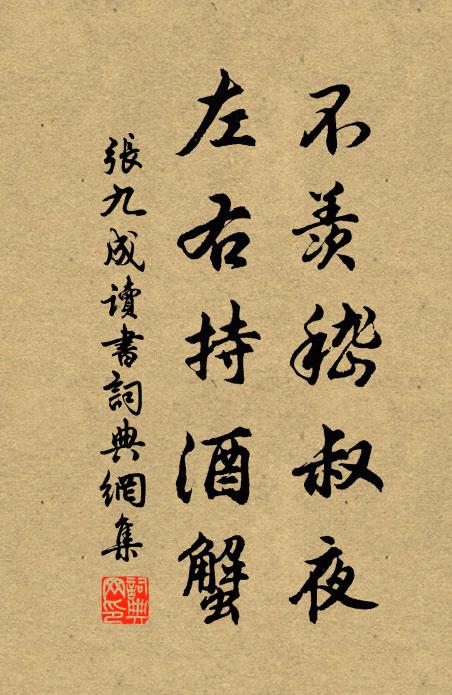 不羨嵇叔夜
左右持酒蟹
張九成讀書詞典網集
詞典網印